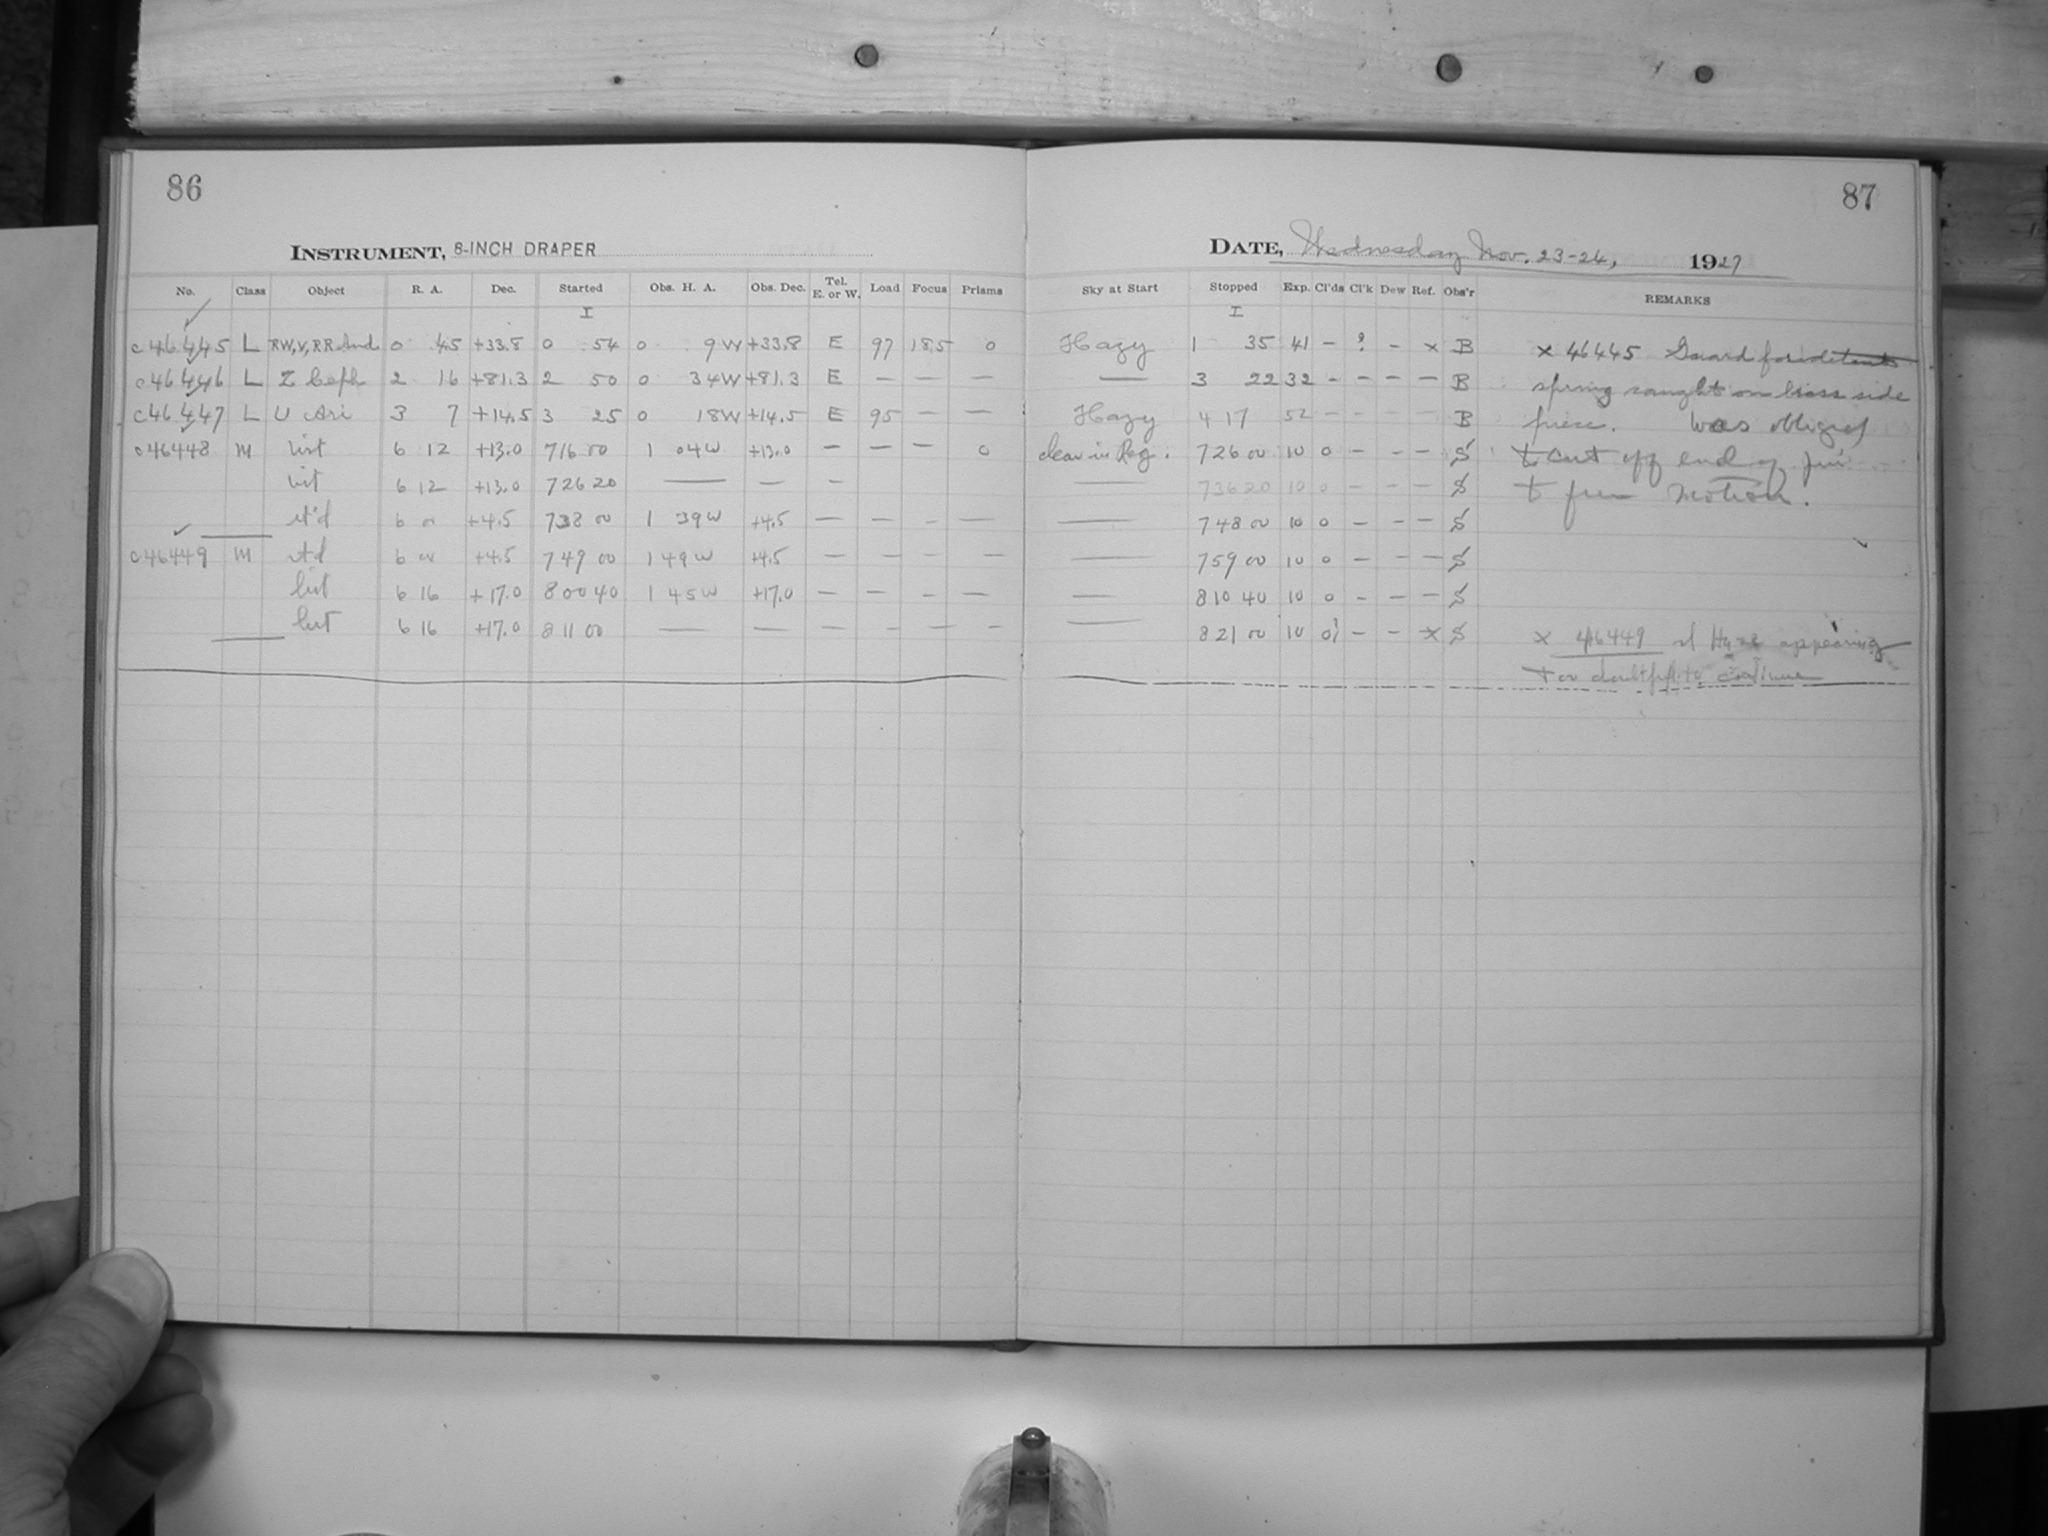 86
INSTRUMENT, 8-INCH DRAPER
No. Class Object R. A. Dec. Started Obs. H. A. Obs. Dec. Tel. E. or W. Load Focus Prisms
I
c46445 L RW, V, RR And 0 45 +33.8 0 54 0 9W +33.8 E 97 18.5 0
c46446 L Z Ceph 2 16 +81.3 2 50 0 34W +81.3 E — — —
c46447 L U Ari 3 7 +14.5 3 25 0 18W +14.5 E 95 — —
c46448 M 6 12 +13.0 7 16 00 1 04W +13.0 — — — 0
6 12 +13.0 7 26 20 — — —
6 00 +4.5 7 38 00 1 39W +4.5 — — - —
c46449 M 6 00 +4.5 7 49 00 1 49W +4.5 — — - —
6 16 +17.0 8 00 40 1 45W +17.0 — — - —
6 16 +17.0 8 11 00 — — — - — -
87
DATE, Wednesday Nov. 23-24, 1927
Sky at Start Stopped Exp. Cl'ds Cl'k Dew Ref. Obs'r REMARKS
I
Hazy 1 35 41 - ? - x B x 46445 Guard for
— 3 22 32 - - - — B spring caught on brass side
Hazy 4 17 52 - - - - B piece. Was obliged
clear in Reg. 7 26 00 10 0 — - — S to cut off end of pin
— 7 36 20 10 0 - - — S to free motion.
— 7 48 00 10 0 — - — S
— 7 59 00 10 0 — - — S
— 8 10 40 10 0 - — — S
— 8 21 00 10 0 — - x S x 46449 Haze appearing
too doubtful to continue